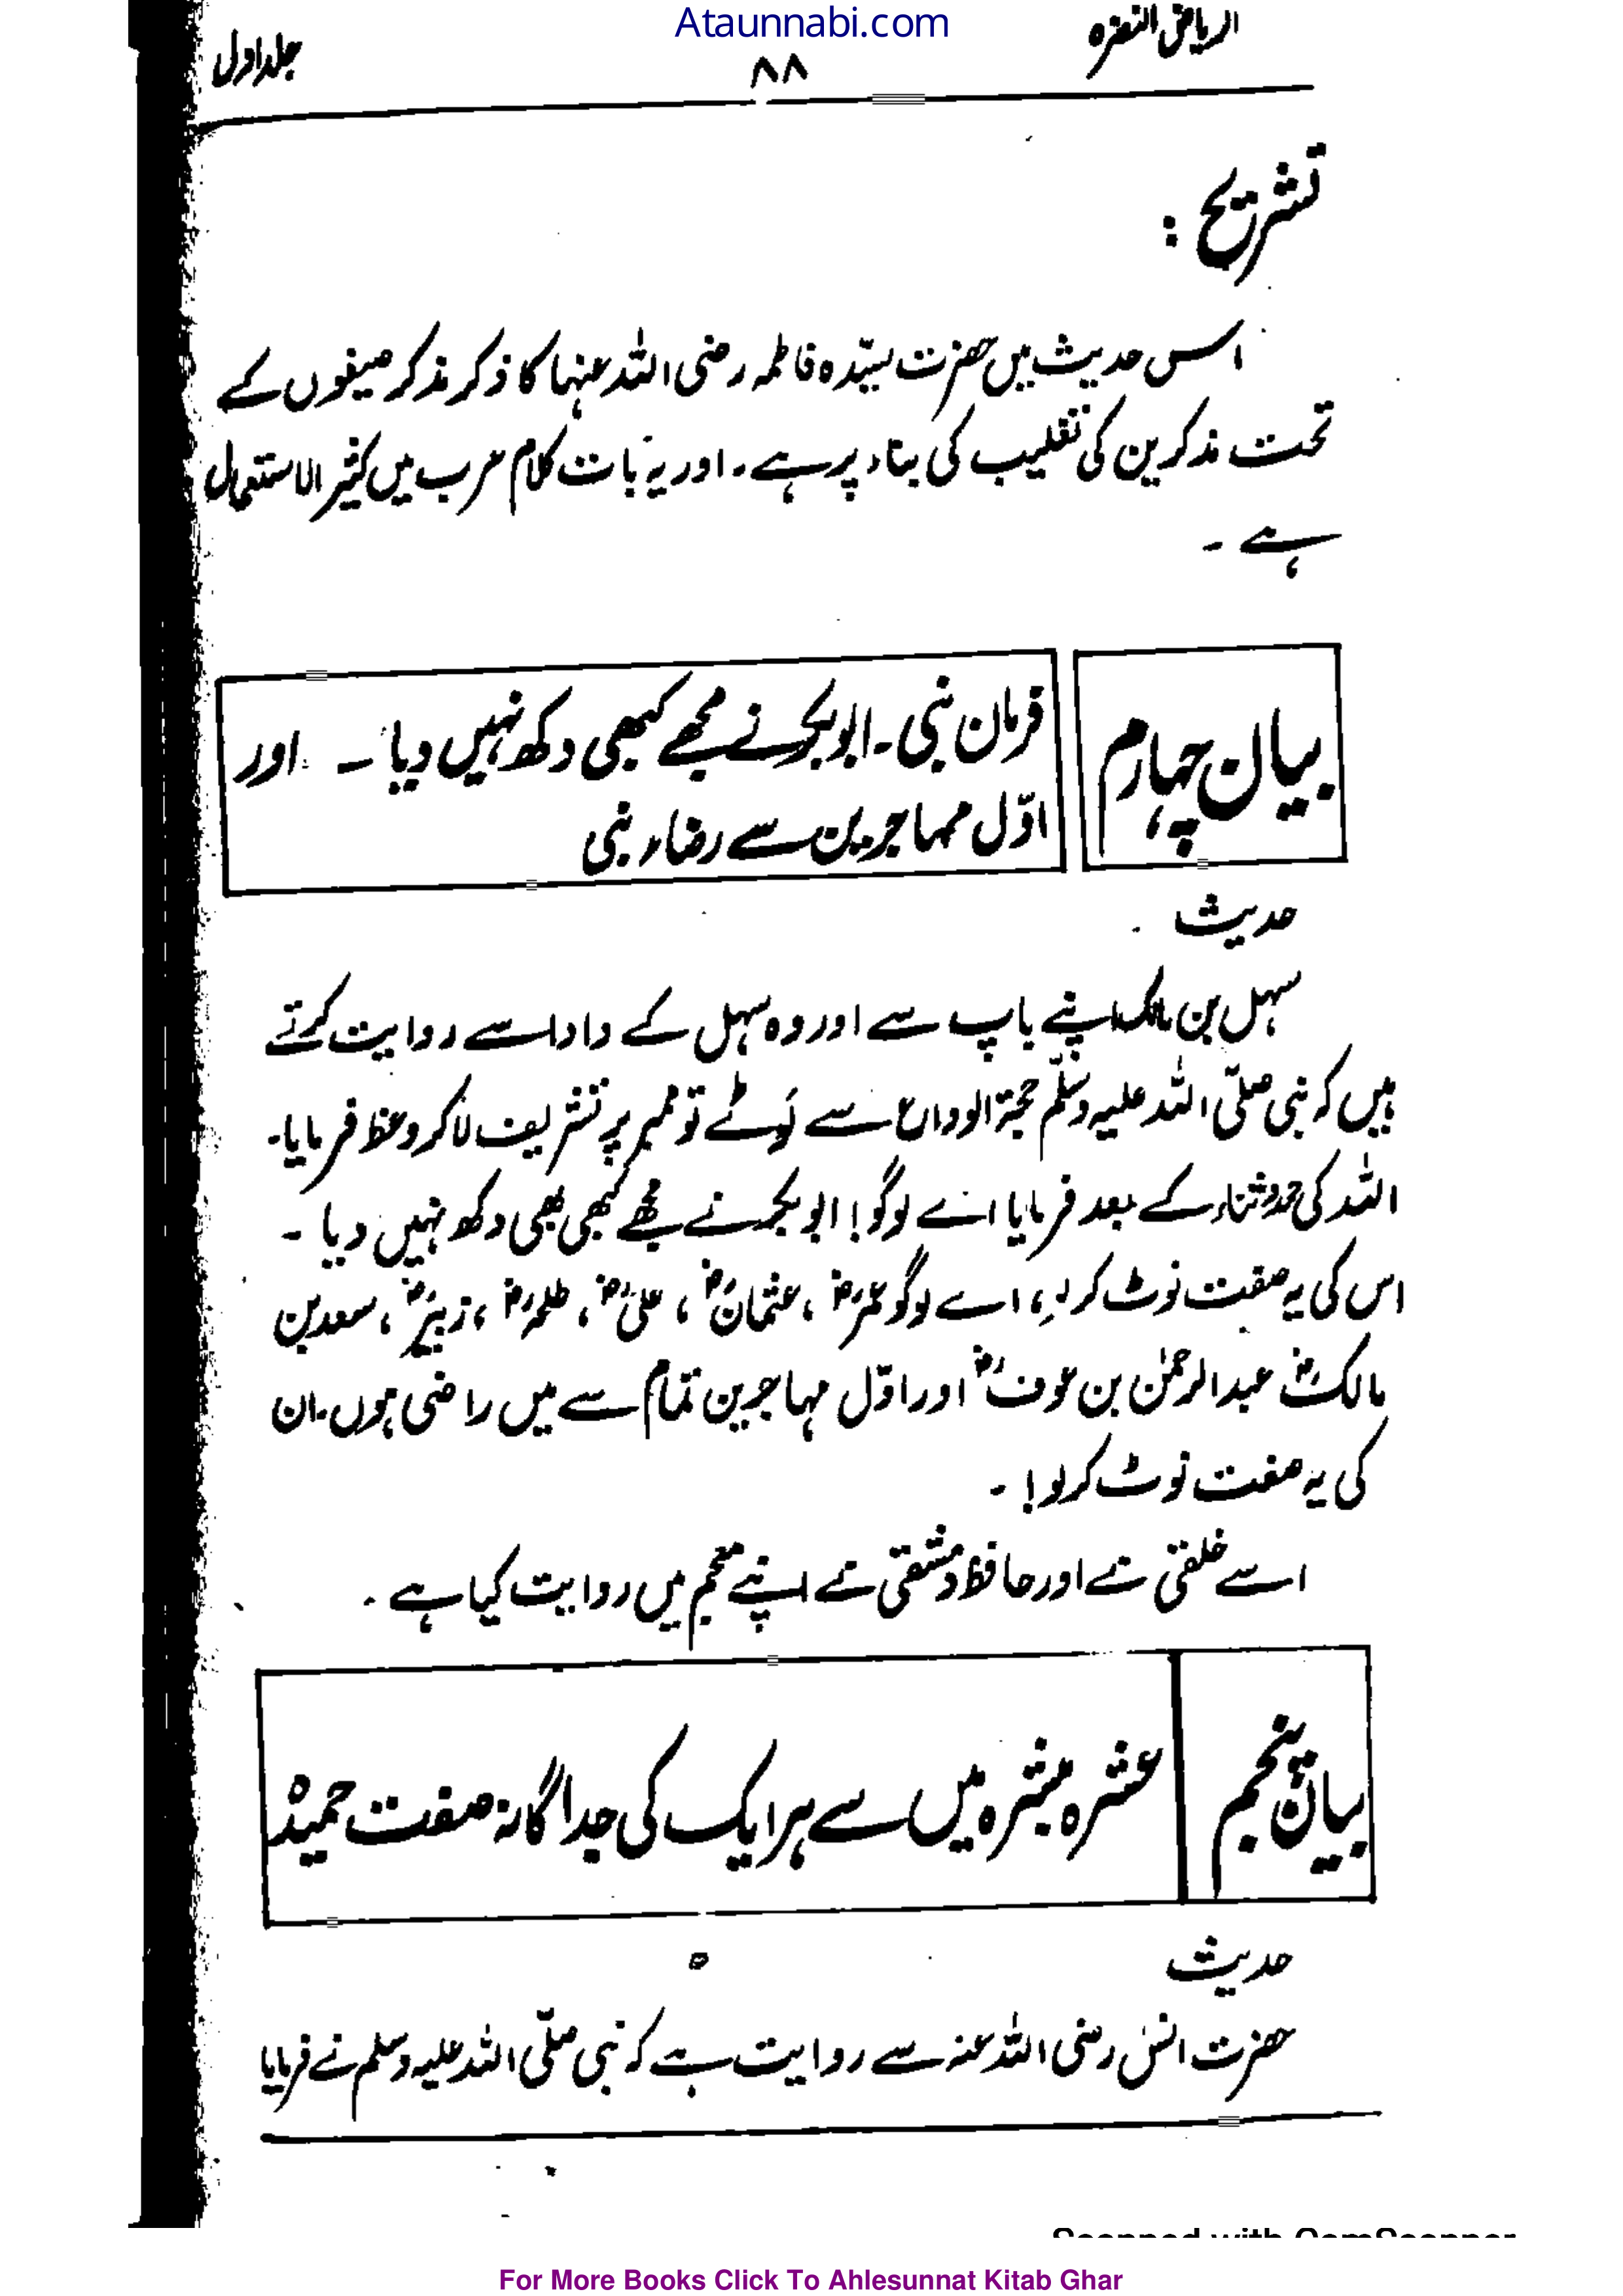 Ataunnabi.com
الریاض النضرہ
۸۸
جلد اول
تشریح :
اس حدیث میں حضرت سیّدہ فاطمہ رضی اللہ عنہا کا ذکر مذکر صیغوں کے
تحت مذکرین کی تغلیب کی بناء پر ہے ۔ اور یہ بات کلام عرب میں کثیر الاستعمال
ہے ۔
بیان چہارم
فرمان نبی ۔ ابوبکر نے مجھے کبھی دکھ نہیں دیا ۔ اور
اوّل مہاجرین سے رضاء نبی
حدیث
سہل بن مالک اپنے باپ سے اور وہ سہل کے دادا سے روایت کرتے
ہیں کہ نبی صلّی اللہ علیہ وسلّم حجۃ الوداع سے لَوٹے تو ممبر پر تشریف لا کر وعظ فرمایا۔
اللہ کی حمد و ثناء کے بعد فرمایا اے لوگو! ابوبکر نے مجھے کبھی بھی دکھ نہیں دیا ۔
اس کی یہ صفت نوٹ کر لو، اے لوگو عمرؓ ، عثمانؓ ، علیؓ ، طلحہؓ ، زبیرؓ ، سعد بن
مالکؓ عبدالرحمٰن بن عوفؓ اور اوّل مہاجرین تمام سے میں راضی ہوں ۔ ان
کی یہ صفت نوٹ کر لو! ۔
اسے خلفی نے اور حافظ دمشقی نے اپنے معجم میں روایت کیا ہے ۔
بیان پنجم
عشرہ مبشرہ میں سے ہر ایک کی جداگانہ صفت حمیدہ
حدیث
حضرت انسؓ رضی اللہ عنہ سے روایت ہے کہ نبی صلّی اللہ علیہ وسلم نے فرمایا
Scanned with CamScanner
For More Books Click To Ahlesunnat Kitab Ghar